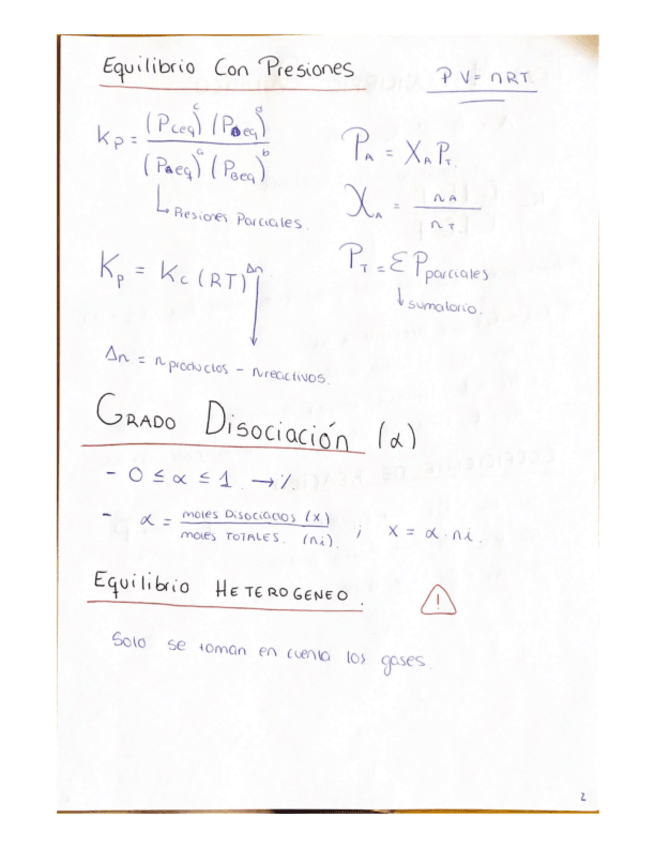 Equilibrio Con Presiones
P V = n R T.
Kp = (PCeq)^c (PDeq)^d / (PAeq)^a (PBeq)^b
↳ Presiones Parciales.
P_A = X_A P_T.
X_A = n_A / n_T
Kp = Kc (RT)^Δn
P_T = Σ P parciales
↓ sumatorio.
Δn = n productos - n reactivos.
GRADO Disociación (α)
- 0 ≤ α ≤ 1. → %.
- α = moles Disociados (x) / moles TOTALES. (ni). ; x = α · ni.
Equilibrio HETEROGENEO.
!
Solo se toman en cuenta los gases.
2